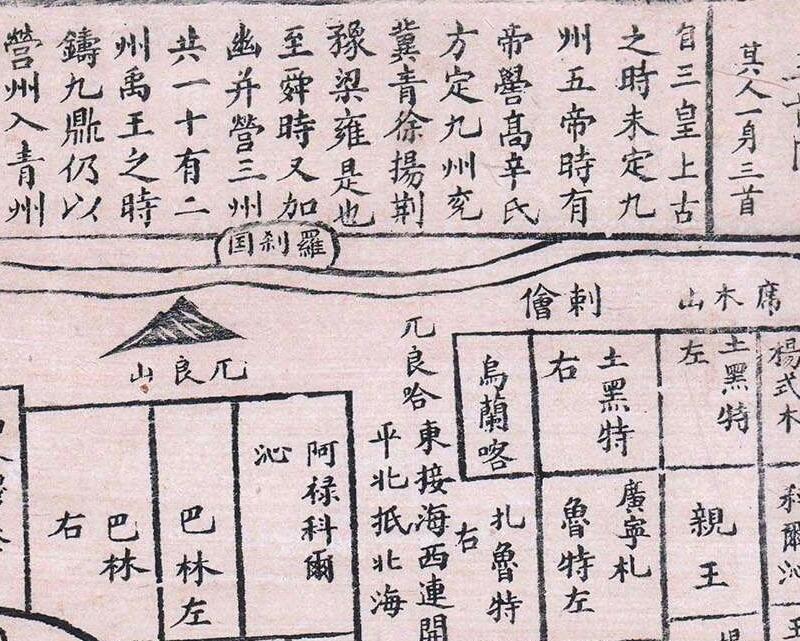 其人一身三首
自三皇上古
之時未定九
州五帝時有
帝嚳高辛氏
方定九州兖
冀青徐揚荆
豫梁雍是也
至舜時又加
幽并營三州
共一十有二
州禹王之時
鑄九鼎仍以
營州入青州
羅刹国
席木山
剌儈
楊式木
土黑特
左
土黑特
右
烏蘭喀
兀良哈
東接海西連開
平北抵北海
兀良山
科爾沁
親王
廣寧札
魯特左
扎魯特
右
阿禄科爾
沁
巴林左
巴林
右